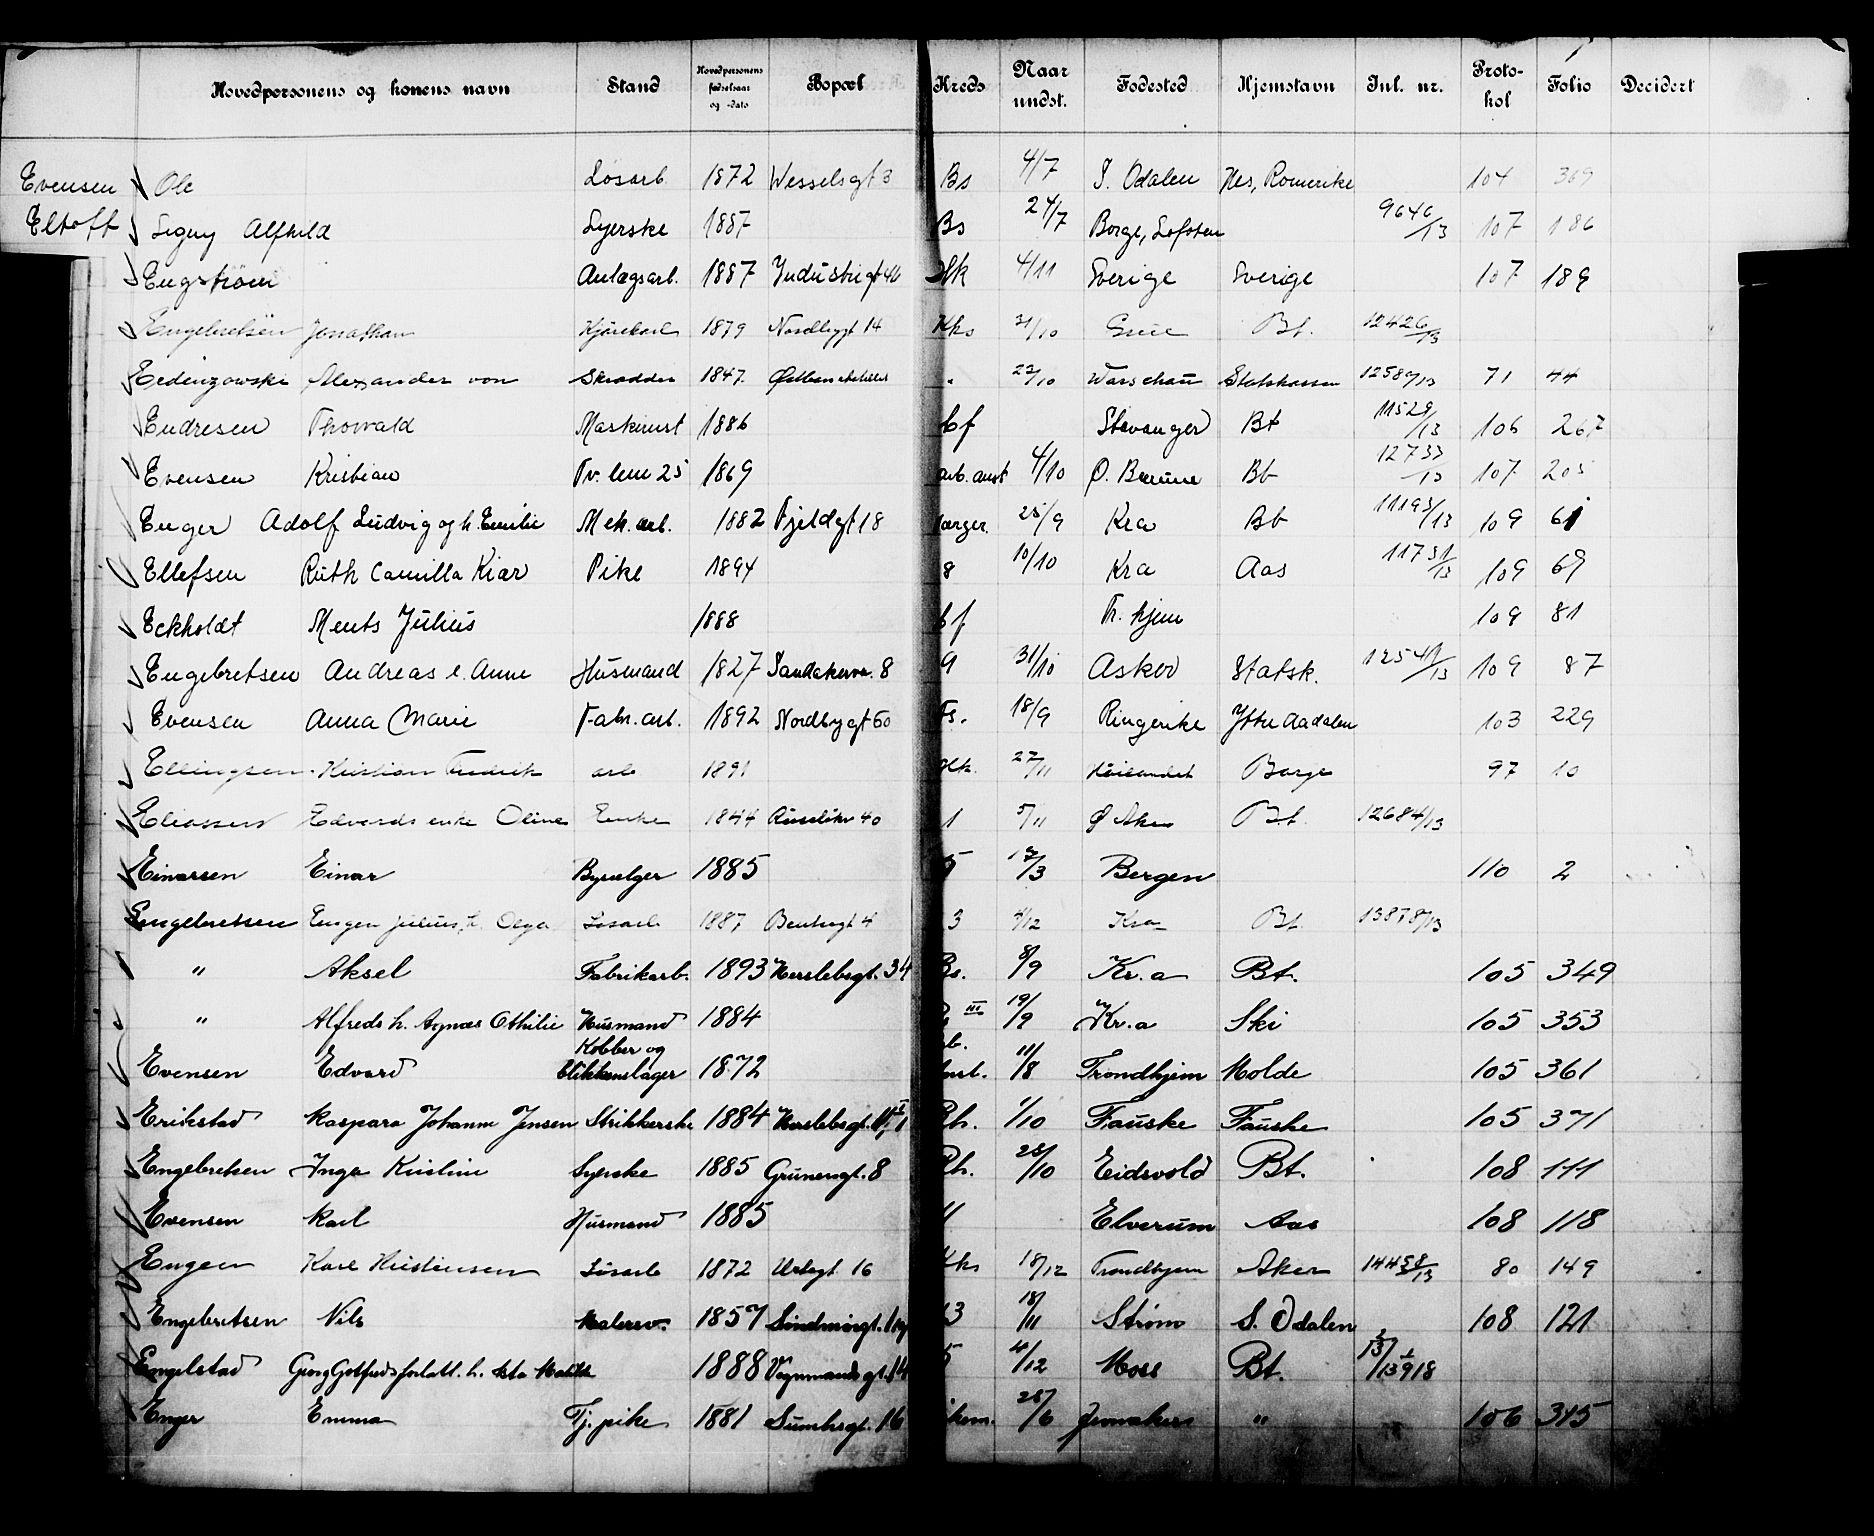 Hovedpersonens og konens navn Stand Hovedpersonens fødselsaar og -dato Bopæl Kreds Naar undst. Fødested Hjemstavn Jul. nr. Protokol Folio Decidert
Evensen Ole Løsarb. 1872 Wesselsgt 3 Bs 4/7 S. Odalen Nes, Romerike 104 369
Eltoft Signy Alfhild Syerske 1887 Bs 24/7 Borge, Lofoten 9646/13 107 186
Engstrøm Anlægsarb. 1887 Industrigt 46 Hk 4/11 Sverige Sverige 107 189
Engebretsen Jonathan Kjørekarl 1879 Nordbygt 14 Kks 31/10 Grue Bt. 12426/13
Alexander von Skrædder 1847 22/10 Warschau Statskassen 71 44
Endresen Thorvald Maskinist 1886 bf Stavanger Bt 11529/13 106 267
Evensen Kristian Tv. lem 25 1869 arb. anst 4/10 Bt 12733/13 107 205
Enger Adolf Ludvig og h. Emilie Mek. arb. 1882 Fjeldgt 18 25/9 Kra Bt 11193/13 109 61
Ellefsen Ruth Camilla Kiær Pike 1894 8 10/10 Kra Aas 11731/13 109 69
Eckholdt Ments Julius 1888 bf Th. hjem 109 81
Engebretsen Andreas e. Anne Husmand 1827 Sandakerv. 8 9 31/10 Asker Statsk. 12541/13 109 87
Evensen Anna Marie Fabr. arb. 1892 Nordbygt 60 Fs. 18/9 Ringerike Ytre Aadalen 103 229
Ellingsen Kristian Fredrik arb 1891 Hk. 27/11 Borge 97 10
Eliassen Edvards enke Oline Enke 1844 40 1 5/11 Ø Aker Bt. 12684/13
Einarsen Einar Byselger 1885 5 12/3 Bergen 110 2
Engebretsen Eugen Julius, h. Olga Løsarb 1887 Bentsegt 4 3 4/12 Kra Bt. 13878/13
" Aksel Fabrikarb. 1893 Herslebsgt. 34 Bs. 8/9 Kr.a Bt. 105 349
" Alfreds h. Agnes Othilie Husmand 1884 III 19/9 Kr.a Ski 105 353
Evensen Edvard Kobber og blikkenslager 1872 11/8 Trondhjem Molde 105 361
Erikstad Kaspara Johanne Jensen Strikkerske 1884 Herslebsgt. Rh. 1/10 Fauske Fauske 105 371
Engebretsen Inga Kristine Syerske 1885 Grünersgt. 8 Rh. 28/10 Eidsvold Bt. 108 111
Evensen Karl Husmand 1885 11 Elverum Aas 108 118
Engen Karl Kristensen Løsarb 1872 Urtegt 16 Kks 18/12 Trondhjem Aker 14458/13 80 149
Engebretsen Nils Malersv. 1857 13 18/11 Strøm S. Odalen 108 121
Engelstad Georg Gotfreds forlatt. h. Asta Matilde 1888 Vognmandsgt. 14 5 4/12 Moss Bt.
Enger Emma Tj. pike 1881 Sumbsgt. 16 28/6 Jevnaker " 106 315